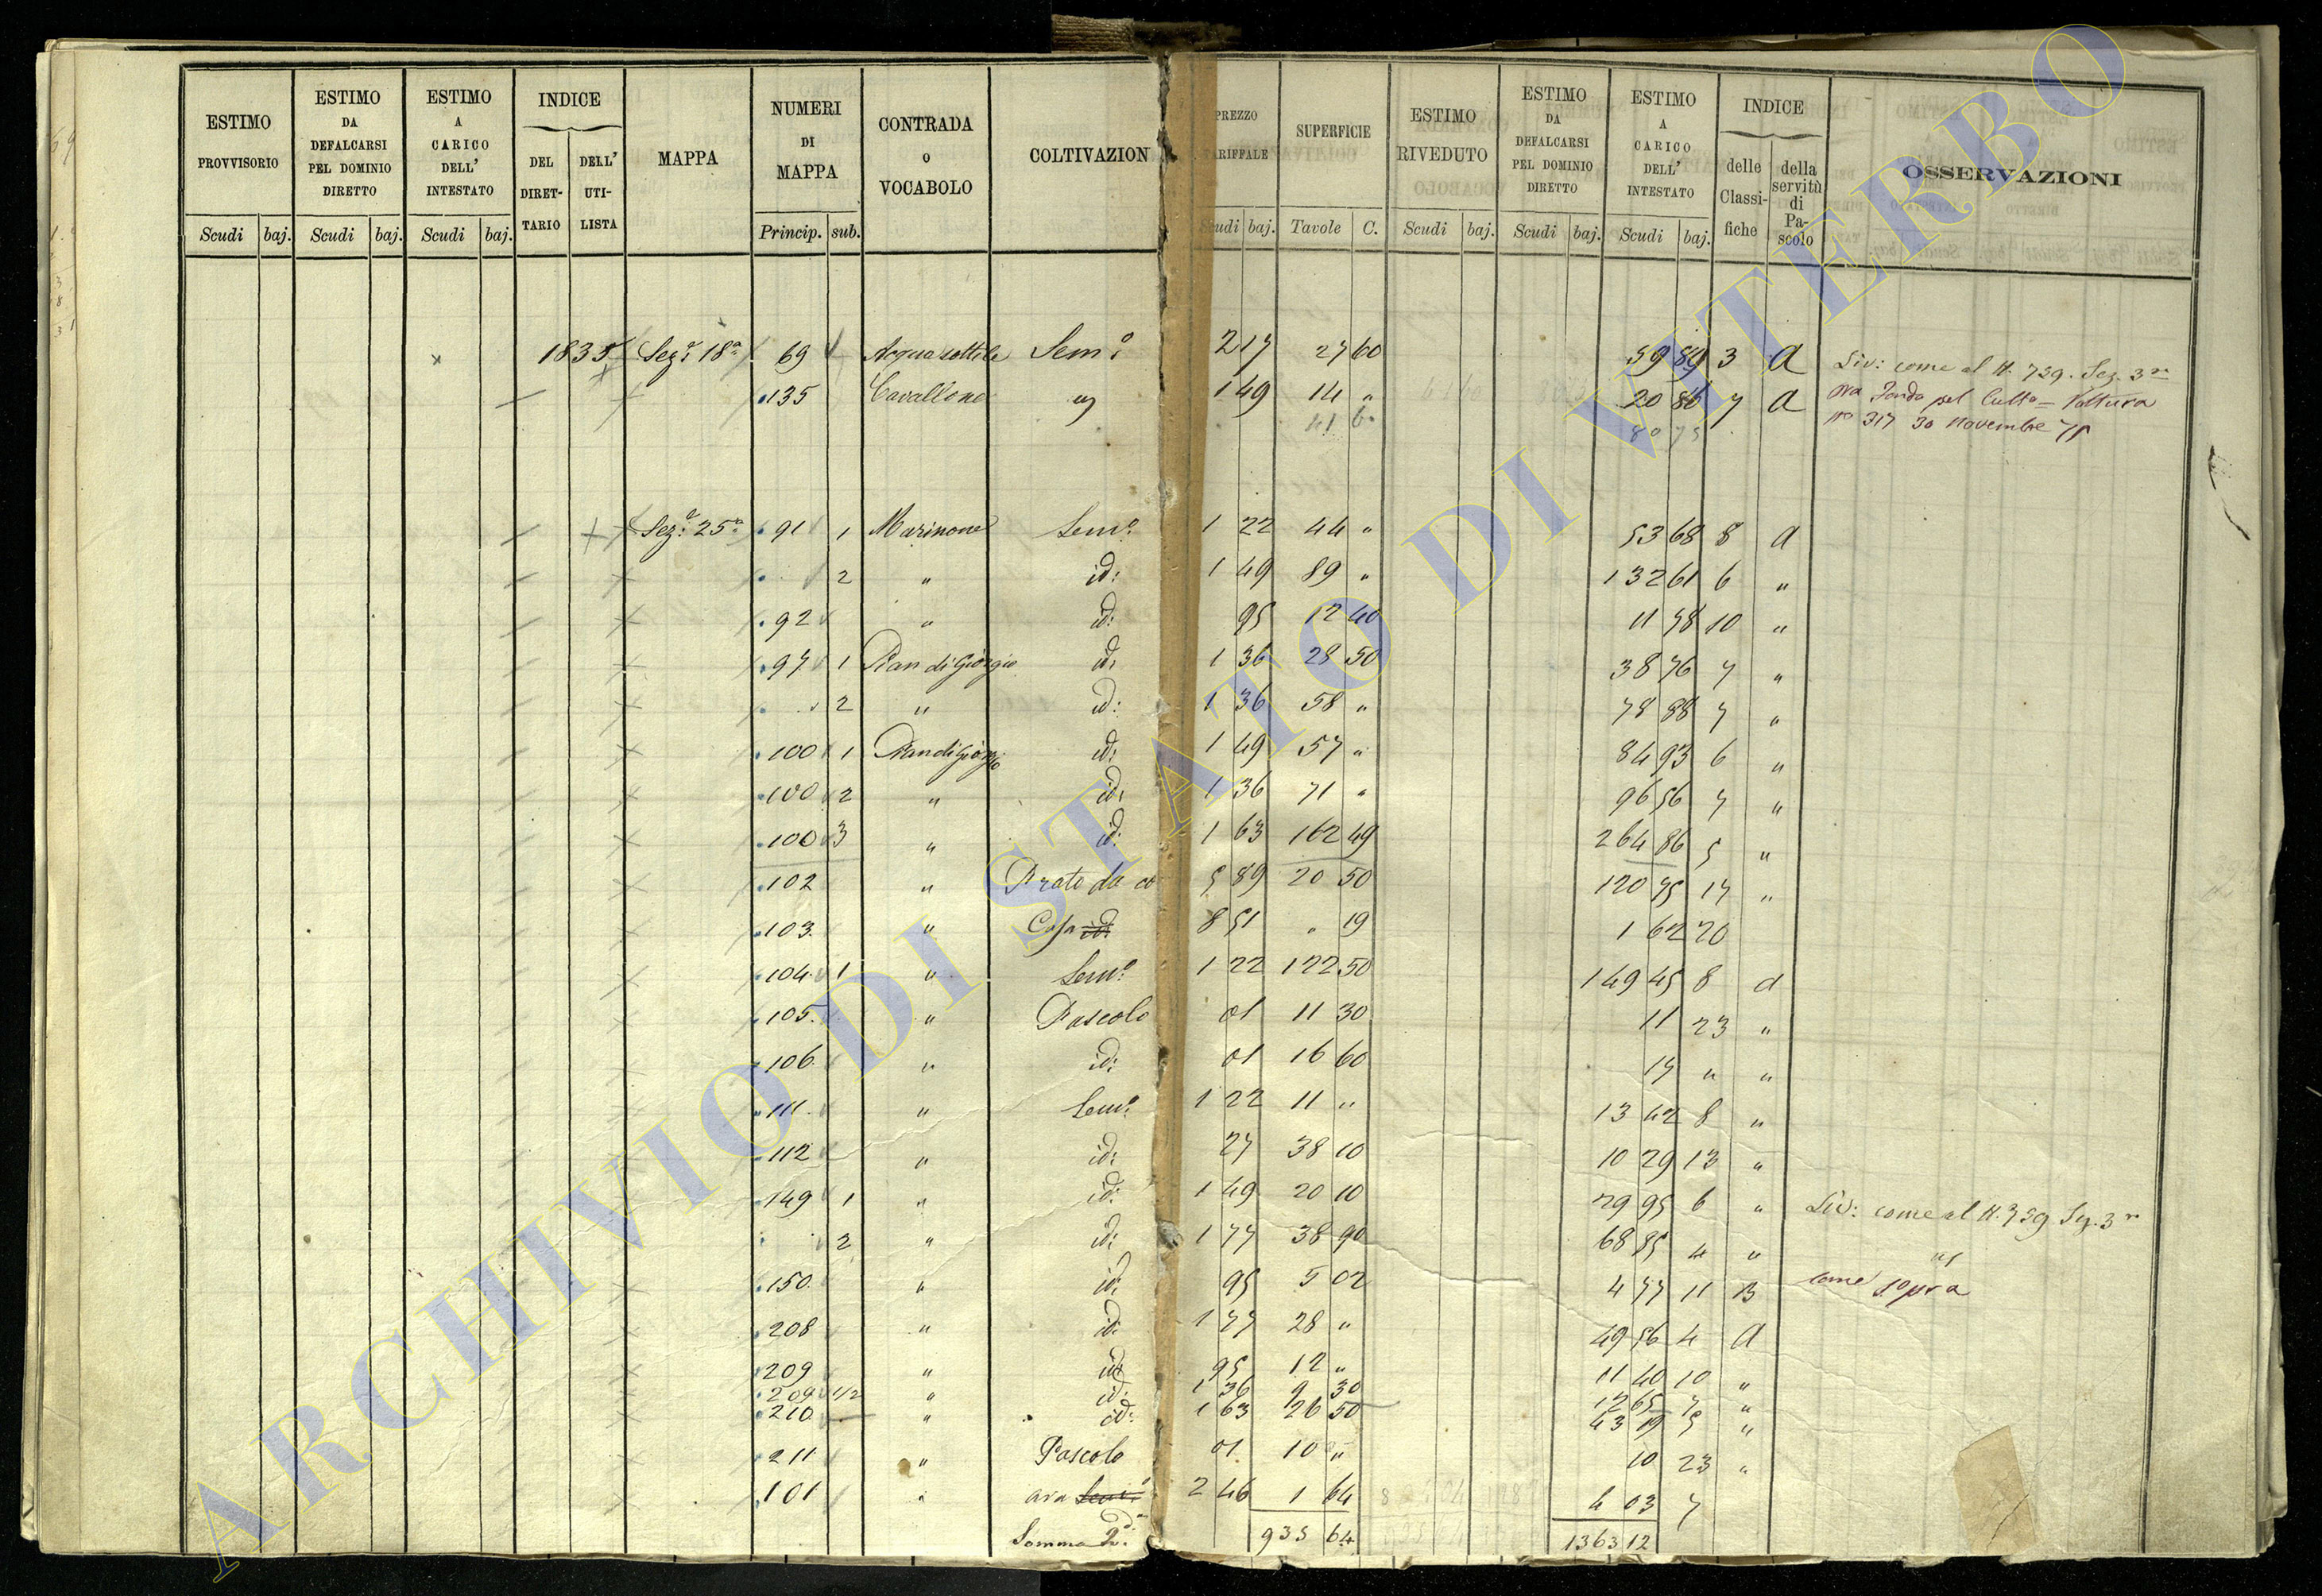 ESTIMO PROVVISORIO Scudi baj.
ESTIMO DA DEFALCARSI PEL DOMINIO DIRETTO Scudi baj.
ESTIMO A CARICO DELL' INTESTATO Scudi baj.
INDICE DEL DIRET-TARIO DELL' UTI-LISTA
MAPPA
NUMERI DI MAPPA Princip. sub.
CONTRADA O VOCABOLO
COLTIVAZION
PREZZO TARIFFALE Scudi baj.
SUPERFICIE Tavole C.
ESTIMO RIVEDUTO Scudi baj.
ESTIMO DA DEFALCARSI PEL DOMINIO DIRETTO Scudi baj.
ESTIMO A CARICO DELL' INTESTATO Scudi baj.
INDICE delle Classi-fiche della servitù di Pa-scolo
OSSERVAZIONI
1835 Sez: 18a 69 Acquasottile Sem: 217 27 60 59 89 3 A Liv: come al N. 729. Sez. 3a
135 Cavallone 1 49 14 " 20 86 7 A ora Fondo pel Culto = Voltura
41 60 80 75 no 317 30 Novembre 71
Seza: 25a 91 1 Marinone Semo: 1 22 44 " 53 68 8 A
2 " id: 1 49 89 " 132 61 6 "
92 " id: 95 12 40 11 78 10 "
97 1 Pian di Giorgio id: 1 36 28 50 38 76 7 "
2 " id: 1 36 58 " 78 88 7 "
100 1 Pian di Giorgio id: 1 49 57 " 84 93 6 "
100 2 " id: 1 36 71 " 96 56 7 "
100 3 " id: 1 63 162 49 264 86 5 "
102 " Prato da co 5 89 20 50 120 75 17 "
103 " Casa id: 8 51 " 19 1 62 20
104 1 " Semo: 1 22 122 50 149 45 8 A
105 " Pascolo 01 11 30 11 23 "
106 " id: 01 16 60 17 " "
111 " Semo: 1 22 11 " 13 42 8 "
112 " id: 27 38 10 10 29 13 "
149 1 " id: 1 49 20 10 29 95 6 " Liv: come al N. 729 Sez. 3a
2 " id: 1 77 38 90 68 85 4 " "
150 " id: 95 5 02 4 77 11 B come sopra
208 " id: 1 77 28 " 49 56 4 A
209 " id: 95 12 " 11 40 10 "
209 1/2 " id: 1 36 9 30 12 65 7 "
210 " id: 1 63 26 50 43 19 5 "
211 " Pascolo 01 10 " 10 23 "
101 " ara Sem: 2 46 1 64 4 03 7
Somma 935 64 1363 12
ARCHIVIO DI STATO DI VITERBO